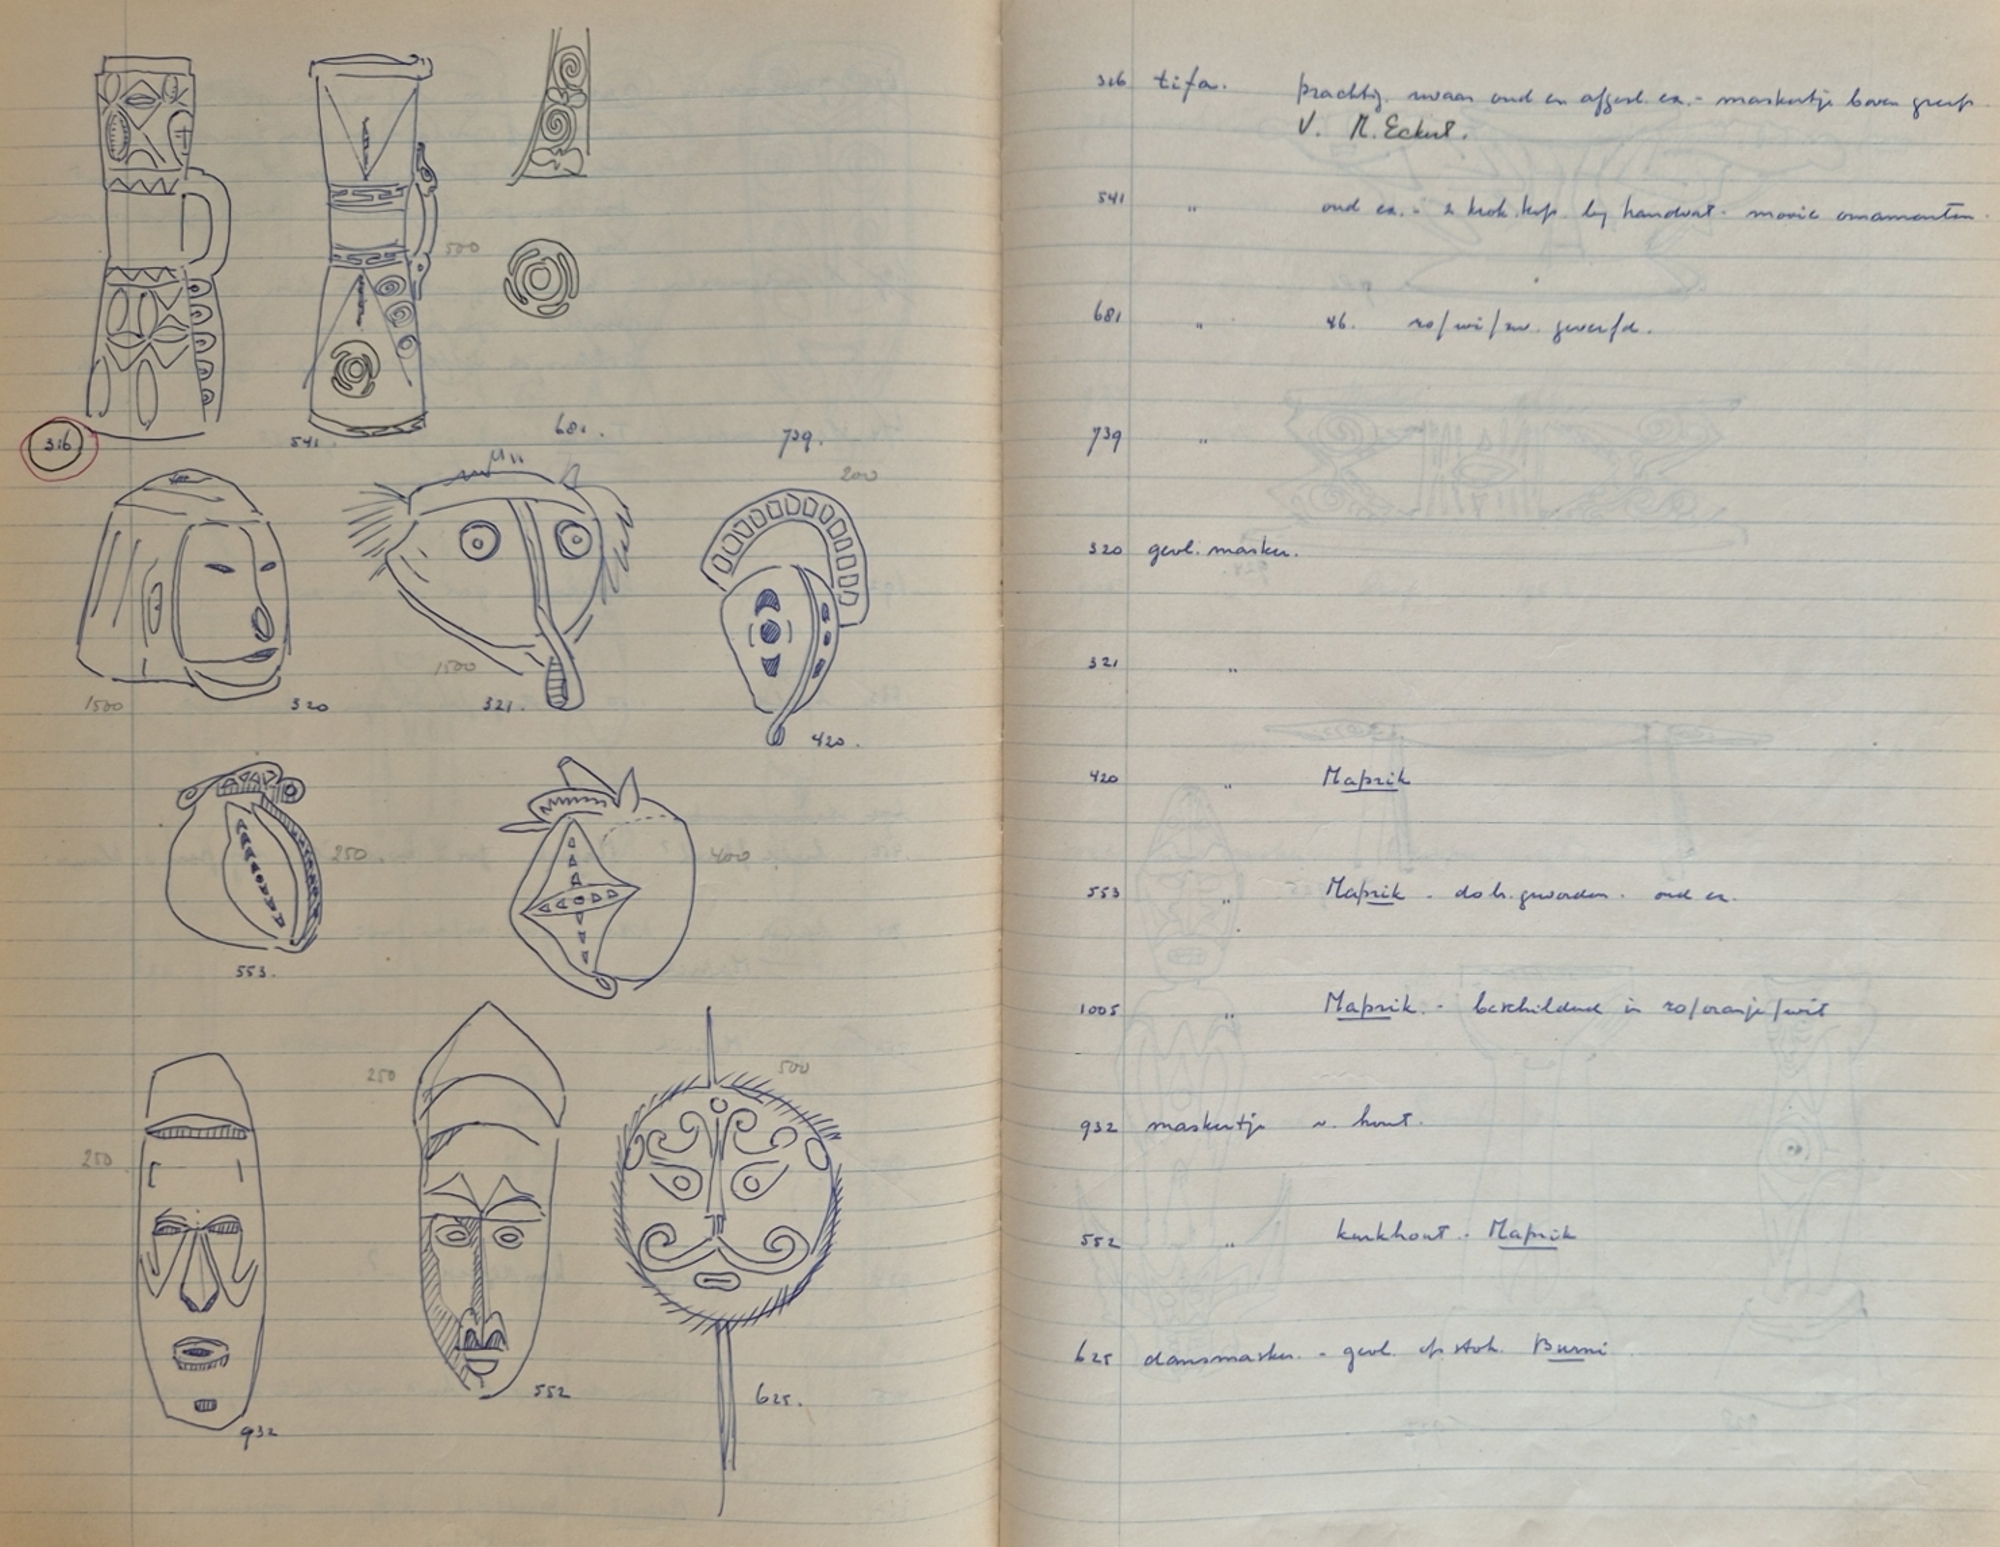 500
316
541.
681.
739.
200
1500
320
1500
321.
420.
250
553.
400
250
932
250
552
500
625.
316 tifa. prachtig. zwaar oud en afgesl. ex. - maskertje boven greep
V. M. Eckert.
541 " oud ex. - 2 krok. kop. bij handvat - mooie ornamenten.
681 " 46. ro/wi/zw. geverfd.
739 "
320 gevl. masker.
321 "
420 " Maprik
553 " Maprik - do br. geworden. oud ex.
1005 " Maprik. - beschilderd in ro/oranje/wit
932 maskertje v. hout.
552 " kurkhout - Maprik
625 dansmasker. - gevl. op stok.